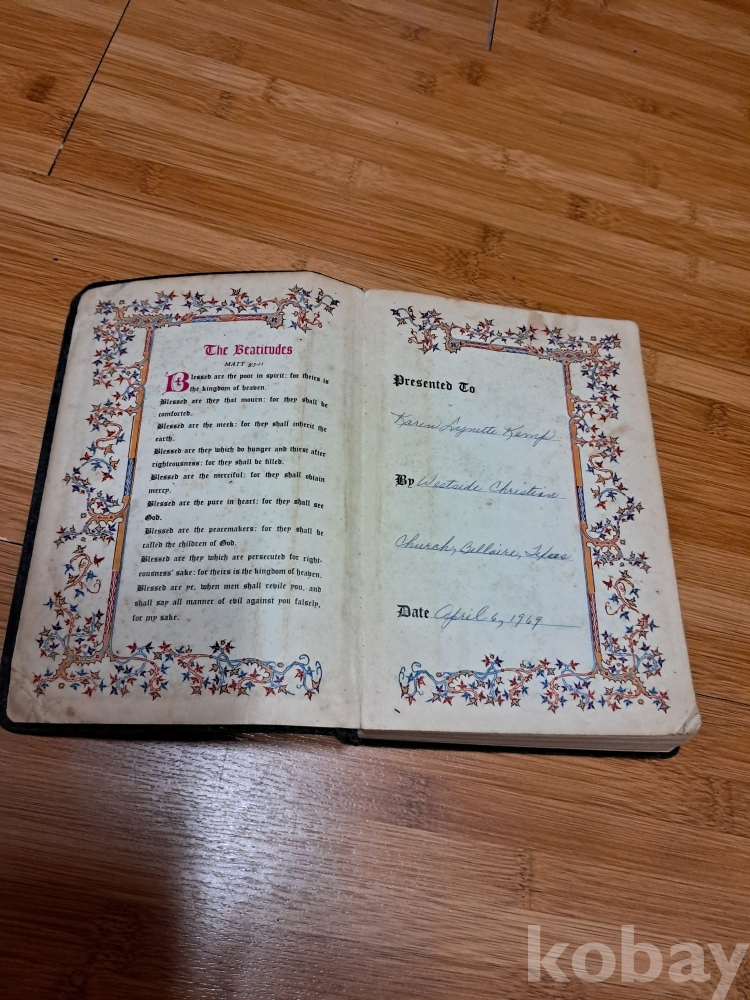 The Beatitudes
MATT 5:3-11
Blessed are the poor in spirit: for theirs is
the kingdom of heaven.
Blessed are they that mourn: for they shall be
comforted.
Blessed are the meek: for they shall inherit the
earth.
Blessed are they which do hunger and thirst after
righteousness: for they shall be filled.
Blessed are the merciful: for they shall obtain
mercy.
Blessed are the pure in heart: for they shall see
God.
Blessed are the peacemakers: for they shall be
called the children of God.
Blessed are they which are persecuted for right-
eousness' sake: for theirs is the kingdom of heaven.
Blessed are ye, when men shall revile you, and
shall say all manner of evil against you falsely,
for my sake.
Presented To
Karen Lynette Kemp
By Westside Christian
Church, Bellaire, Texas
Date April 6, 1969
kobay